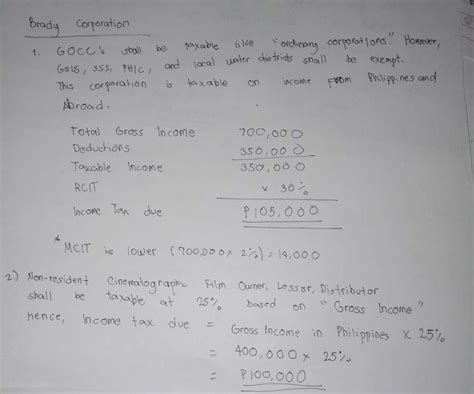 Brady Corporation
1. GOCC's shall be taxable like "ordinary corporations." However,
GSIS, SSS, PHIC, and local water districts shall be exempt.
This corporation is taxable on income from Philippines and
Abroad.
Total Gross Income 700,000
Deductions 350,000
Taxable Income 350,000
RCIT x 30%
Income Tax due ₱105,000
* MCIT is lower (700,000 x 2%) = 14,000
2.) Non-resident Cinematographic Film Owner, Lessor, Distributor
shall be taxable at 25% based on "Gross Income"
Hence, Income tax due = Gross Income in Philippines x 25%
= 400,000 x 25%
= ₱100,000